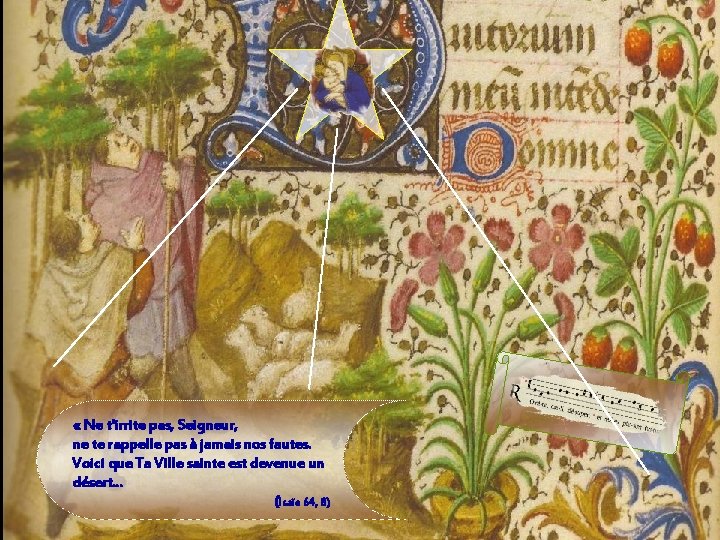 Domine
R Rorate, cæli, désuper, et nubes pluant
« Ne t'irrite pas, Seigneur,
ne te rappelle pas à jamais nos fautes.
Voici que Ta Ville sainte est devenue un
désert...
(Isaïe 64, 8)